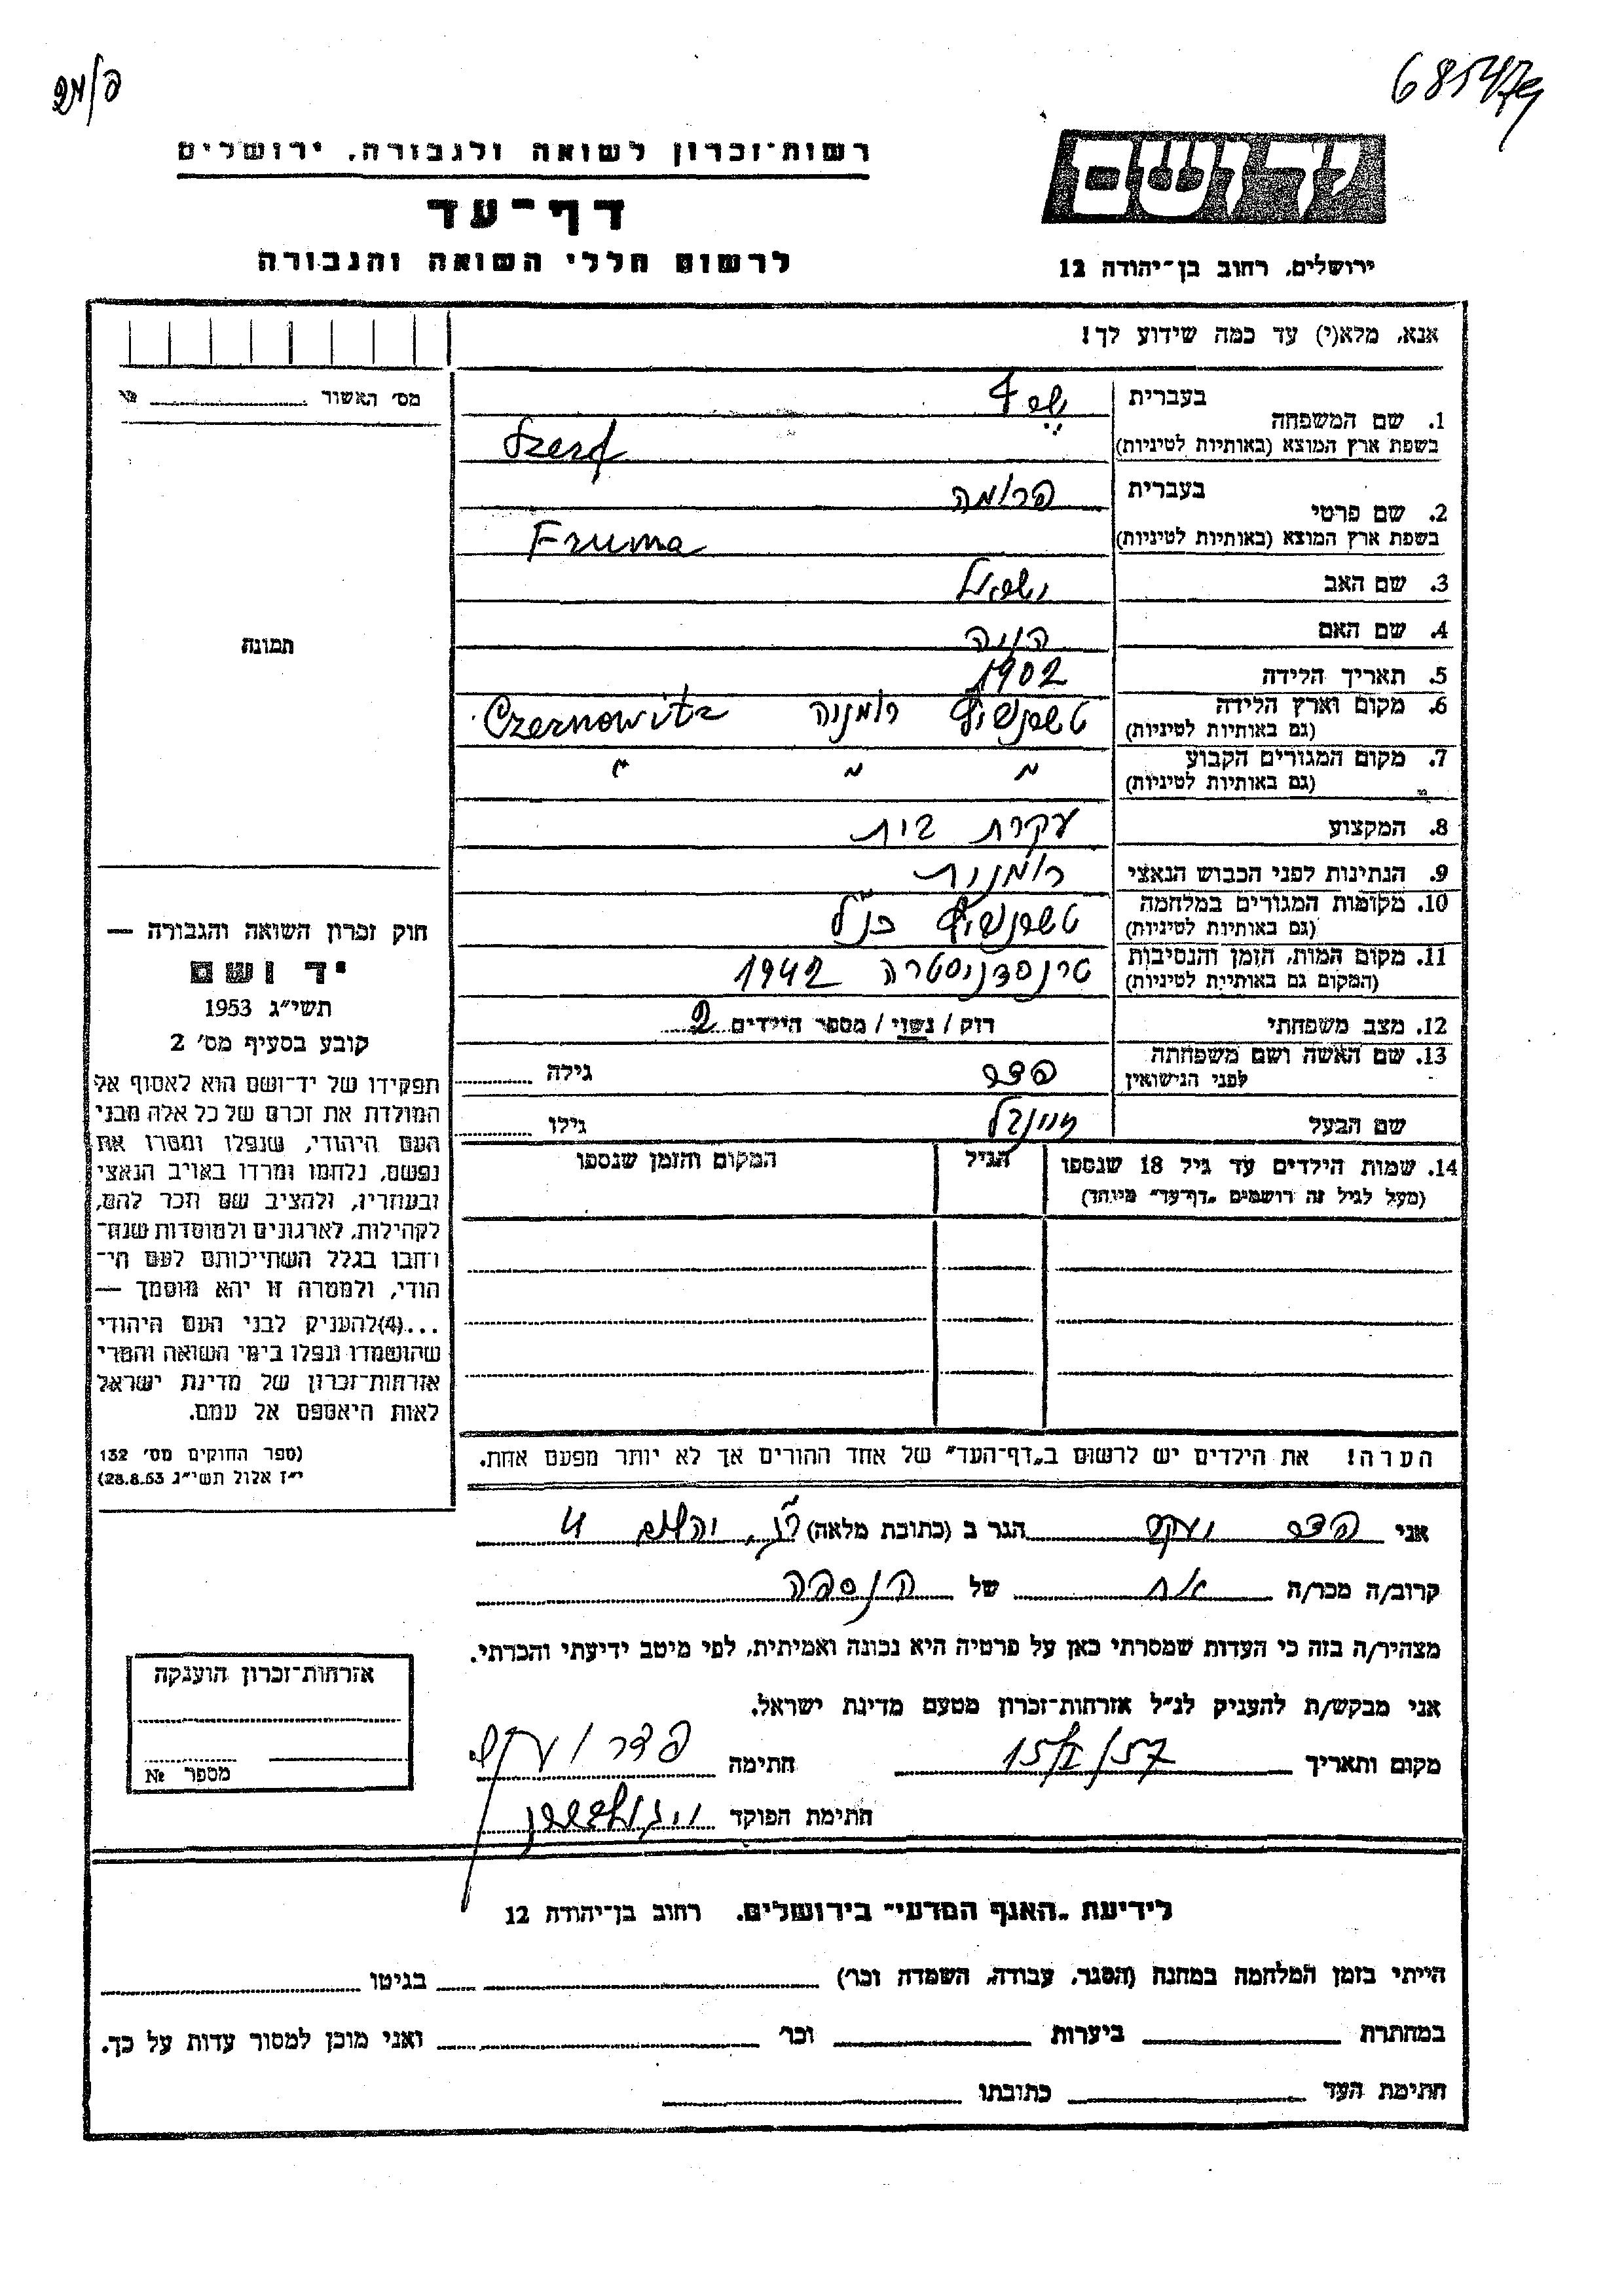 685479
רשות־זכרון לשואה ולגבורה, ירושלים
דף־עד
לרשום חללי השואה והגבורה
ירושלים, רחוב בן־יהודה 12
אנא, מלא(י) עד כמה שידוע לך!
מס׳ האשור № 
1. שם המשפחה בעברית
בשפת ארץ המוצא (באותיות לטיניות) Szerf
2. שם פרטי בעברית פרומה
בשפת ארץ המוצא (באותיות לטיניות) Fruma
3. שם האב
4. שם האם חיה
5. תאריך הלידה 1902
6. מקום וארץ הלידה רומניה Czernowitz
(גם באותיות לטיניות)
7. מקום המגורים הקבוע " " "
(גם באותיות לטיניות)
8. המקצוע עקרת בית
9. הנתינות לפני הכבוש הנאצי רומנית
10. מקומות המגורים במלחמה כנ"ל
(גם באותיות לטיניות)
11. מקום המות, הזמן והנסיבות טרנסדניסטרה 1942
(המקום גם באותיות לטיניות)
12. מצב משפחתי רוק / נשוי / מספר הילדים 2
13. שם האשה ושם משפחתה פדר גילה
לפני הנישואין
שם הבעל גילו
14. שמות הילדים עד גיל 18 שנספו הגיל המקום והזמן שנספו
(מעל לגיל זה רושמים „דף־עד״ מיוחד)
הערה! את הילדים יש לרשום ב„דף־העד״ של אחד ההורים אך לא יותר מפעם אחת.
תמונה
חוק זכרון השואה והגבורה —
יד ושם
תשי״ג 1953
קובע בסעיף מס׳ 2
תפקידו של יד־ושם הוא לאסוף אל
המולדת את זכרם של כל אלה מבני
העם היהודי, שנפלו ומסרו את
נפשם, נלחמו ומרדו באויב הנאצי
ובעוזריו, ולהציב שם וזכר להם,
לקהילות, לארגונים ולמוסדות שנח־
רבו בגלל השתייכותם לעם הי־
הודי, ולמטרה זו יהא מוסמך —
...(4)להעניק לבני העם היהודי
שהושמדו ונפלו בימי השואה והמרי
אזרחות־זכרון של מדינת ישראל
לאות היאספם אל עמם.
(ספר החוקים מס׳ 132
י״ז אלול תשי״ג 28.8.53)
אני פדר יעקב הגר ב (כתובת מלאה) 4
קרוב/ה מכר/ה אח של הנספה
מצהיר/ה בזה כי העדות שמסרתי כאן על פרטיה היא נכונה ואמיתית, לפי מיטב ידיעתי והכרתי.
אני מבקש/ת להעניק לנ״ל אזרחות־זכרון מטעם מדינת ישראל.
מקום ותאריך 15/ /57 חתימה פדר יעקב
חתימת הפוקד
אזרחות־זכרון הוענקה
מספר №
לידיעת „האגף המדעי״ בירושלים, רחוב בן־יהודה 12
הייתי בזמן המלחמה במחנה (הסגר, עבודה, השמדה וכר׳) בגיטו
במחתרת ביערות וכר׳ ואני מוכן למסור עדות על כך.
חתימת העד כתובתו